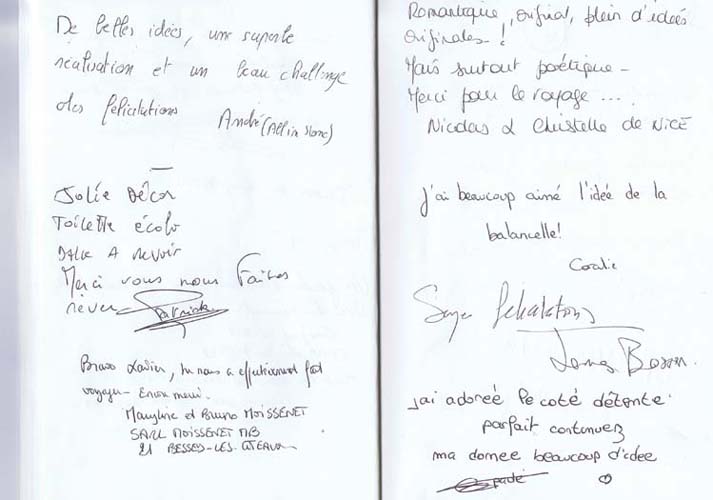 De belles idées, une superbe
réalisation et un beau challenge
des félicitations
André (All in stone)
Jolie Décor
Toilette écolo
DALLE A revoir
Merci vous nous Faites
rêver Patrick
Bravo Xavier, tu nous a effectivement fait
voyager - Encore merci.
Maryline et Bruno MOISSENET
SARL MOISSENET MB
21 BESSEY-LES-CITEAUX
Romantique, original, plein d'idées
originales !
Mais surtout poétique -
Merci pour le voyage ...
Nicolas & Christelle de NICE
J'ai beaucoup aimé l'idée de la
balancelle!
Coralie
Super félicitations
jai adoreé le coté détente.
parfait continuez
ma donnee beaucoup d'idee